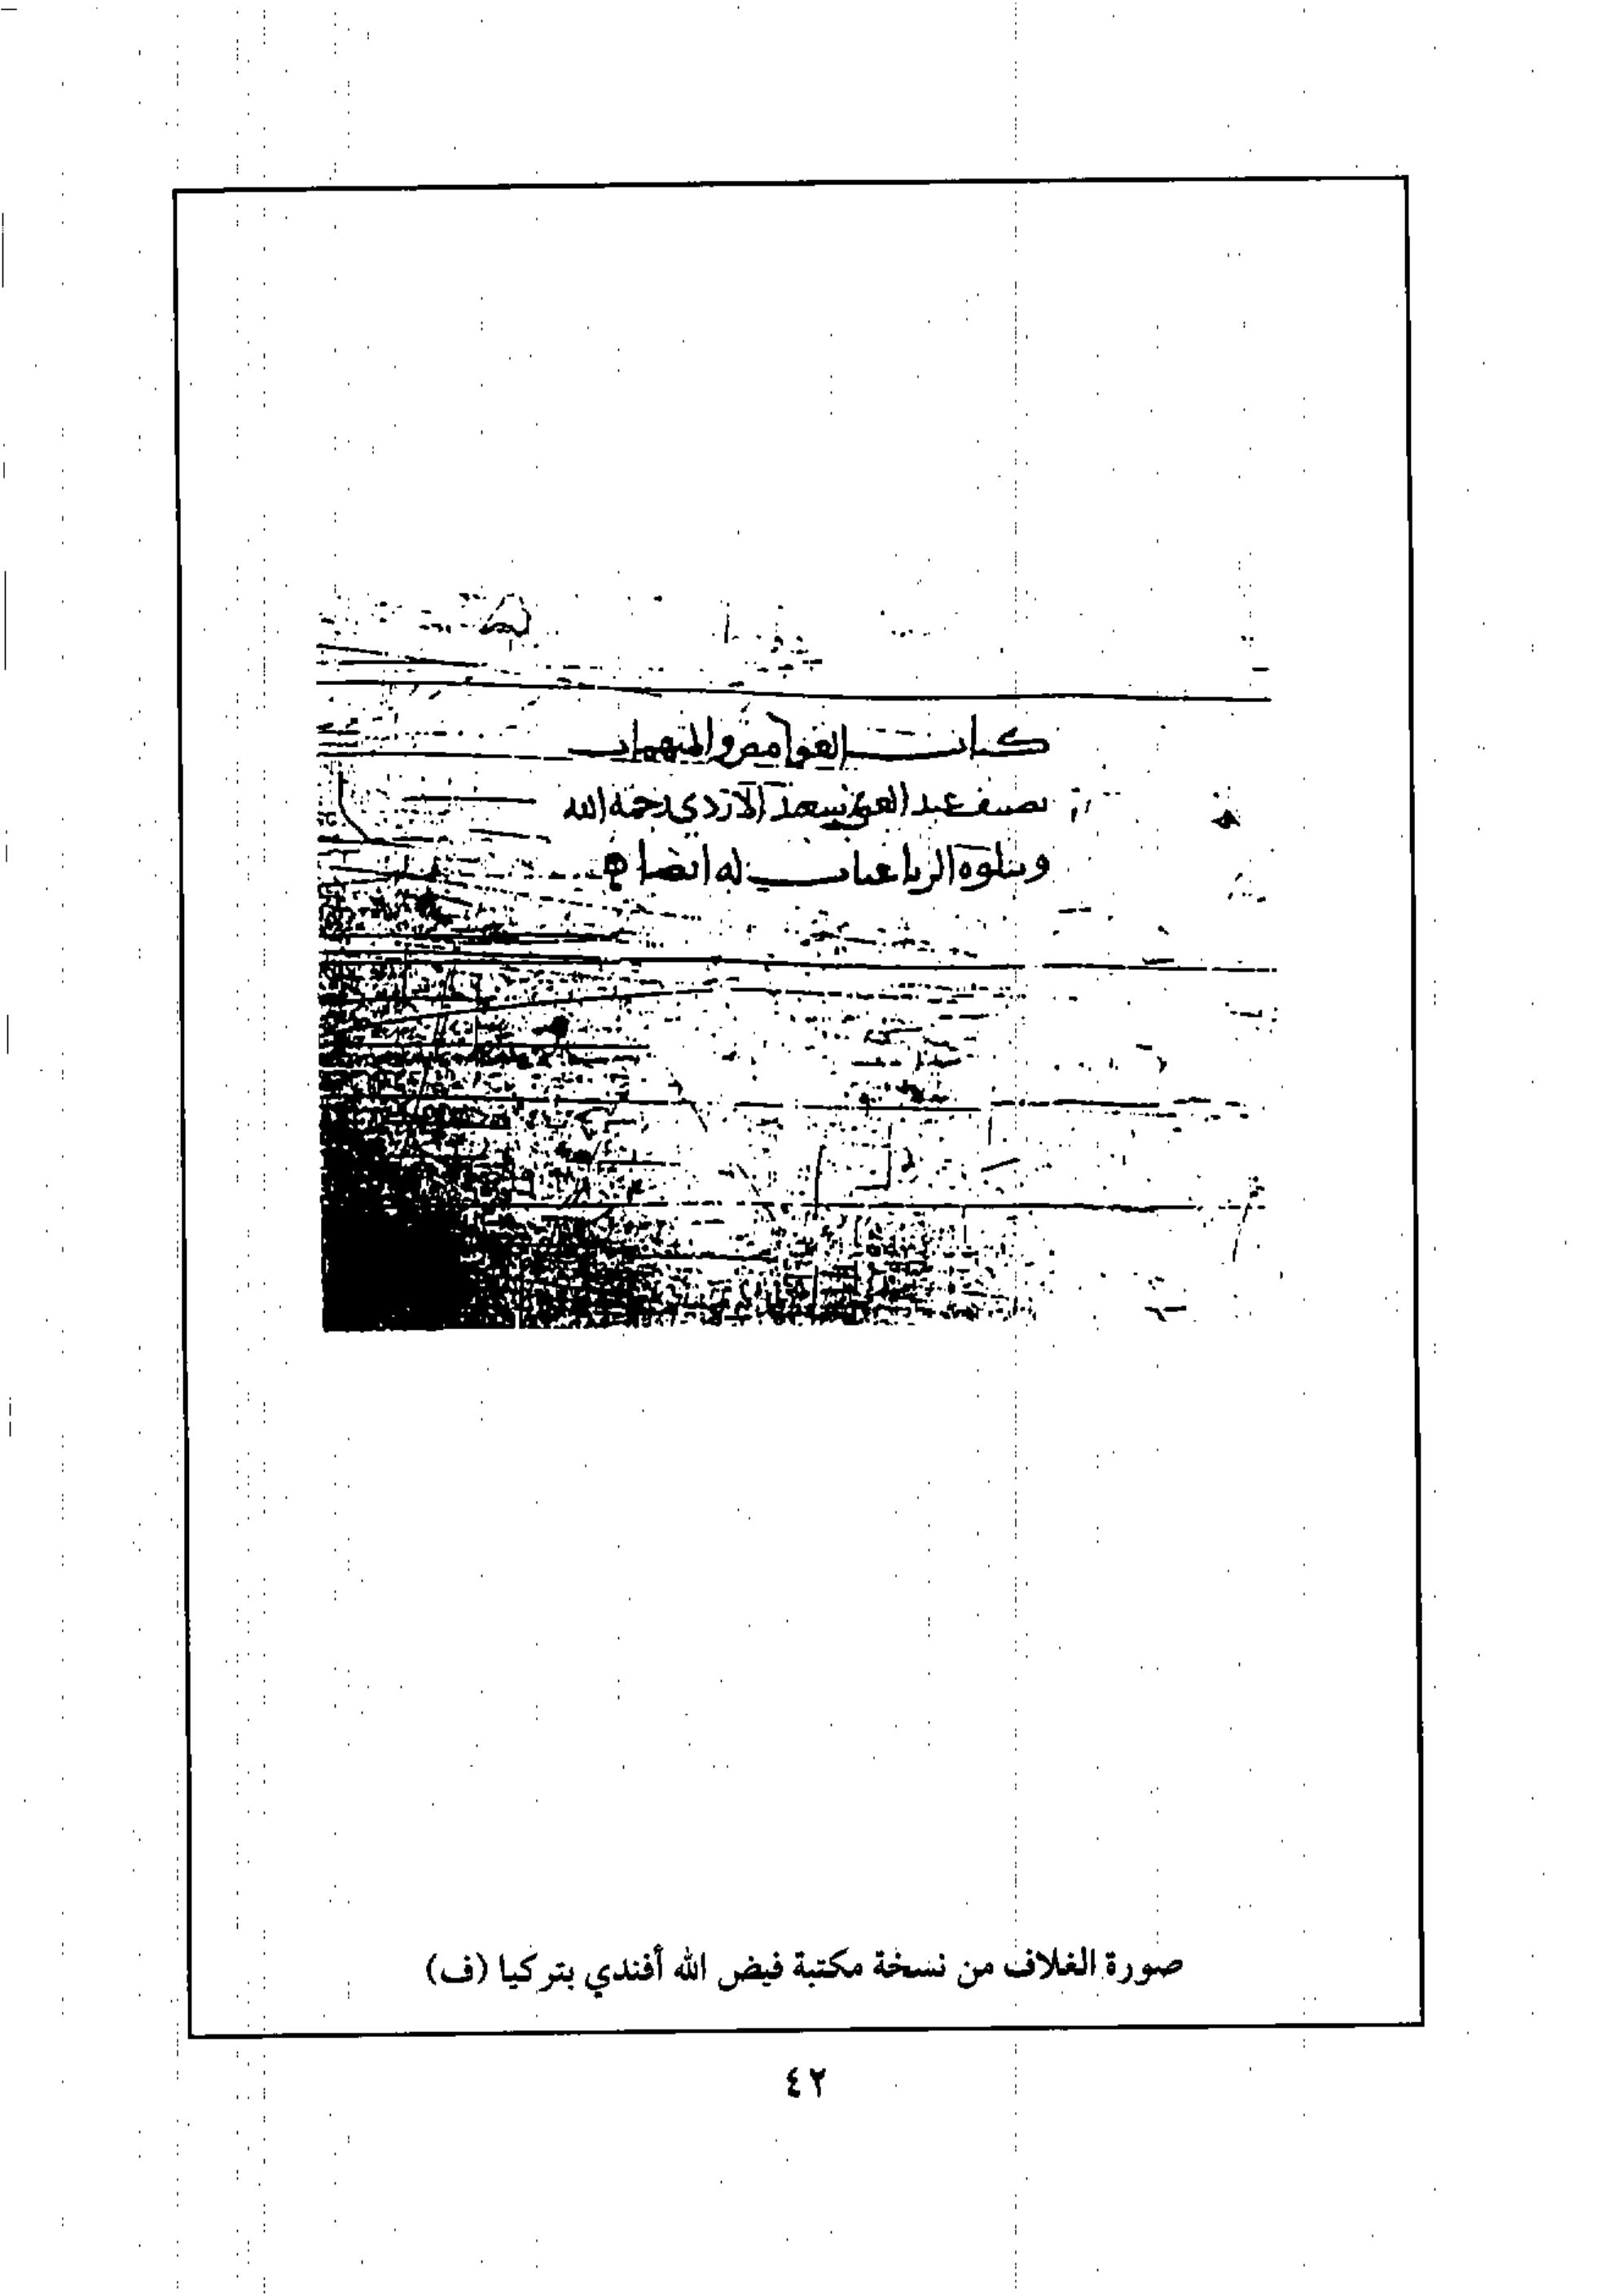 كتاب الغوامض والمبهمات
تصنيف عبد الغني بن سعيد الازدي رحمه الله
ويتلوه الرباعيات له ايضا
صورة الغلاف من نسخة مكتبة فيض الله أفندي بتركيا (ف)
٤٢